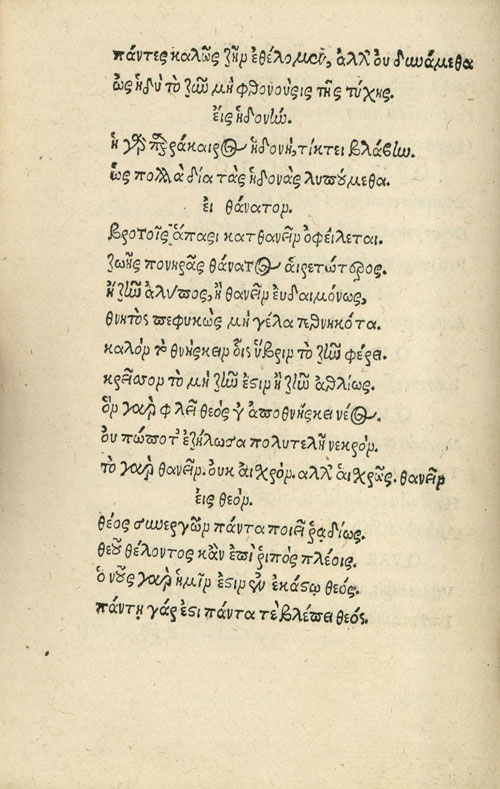 πάντες καλῶς ζῆν ἐθέλομεν, ἀλλ' οὐ δυνάμεθα
ὡς ἡδὺ τὸ ζῆν μὴ φθονούσις τῆς τύχης.
εἰς ἡδονήν.
ἡ γὰρ παράκαιρος ἡδονὴ, τίκτει βλάβην.
ὡς πολλὰ διὰ τὰς ἡδονὰς λυπούμεθα.
εἰ θάνατον.
βροτοῖς ἅπασι κατθανεῖν ὀφείλεται.
ζωῆς πονηρᾶς θάνατος αἱρετώτερος.
ἢ ζῆν ἀλύπος, ἢ θανεῖν εὐδαιμόνως,
θνητὸς πεφυκὼς μὴ γέλα τεθνηκότα.
καλὸν τὸ θνήσκειν οἷς ὕβριν τὸ ζῆν φέρει.
κρεῖσσον τὸ μὴ ζῆν ἐστιν ἢ ζῆν ἀθλίως.
ὃν γὰρ φιλεῖ θεὸς γ' ἀποθνήσκει νέος.
οὐ πώποτ' ἐζήλωσα πολυτελῆ νεκρόν.
τὸ γὰρ θανεῖν. οὐκ αἰχρόν. ἀλλ' αἰχρῶς. θανεῖν
εἰς θεόν.
θέος συνεργῶν πάντα ποιεῖ ῥᾳδίως.
θεοῦ θέλοντος κἂν ἐπὶ ῥιπὸς πλέοις.
ὁ νοῦς γὰρ ἡμῖν ἐστιν ἐν ἑκάστῳ θεός.
πάντῃ γάρ ἐστι πάντα τὲ βλέπει θεός.